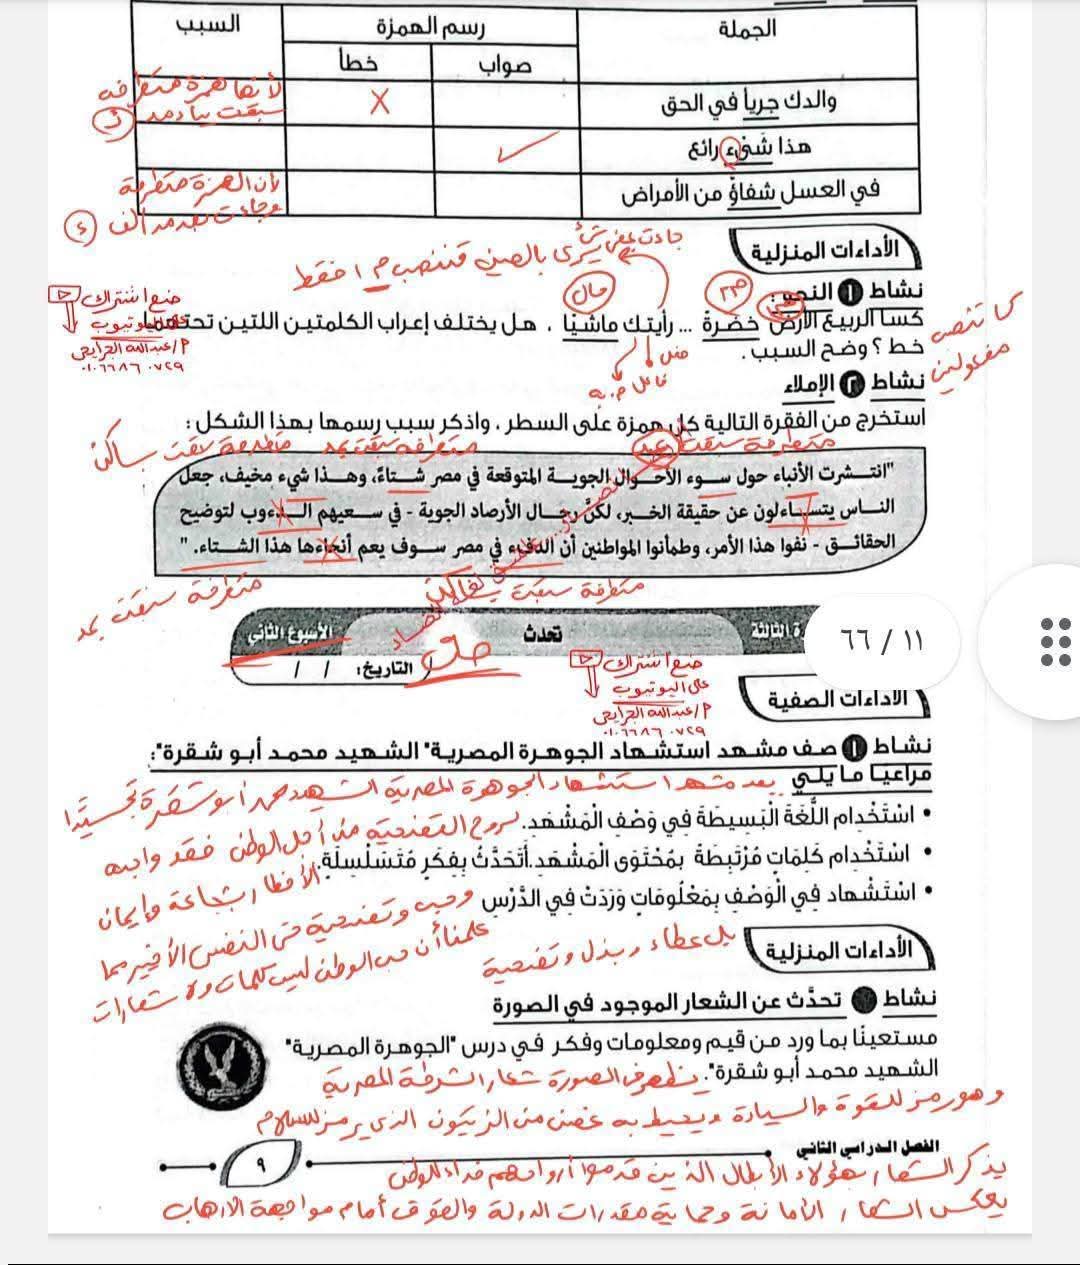 الجملة
رسم الهمزة
السبب
صواب
خطأ
والدك جريأ في الحق
X
لأنها همزة متطرفة
سبقت بياء مد
هذا شيء رائع
في العسل شفاؤ من الأمراض
لأن الهمزة متطرفة
وجاءت بعد مد ألف ء
الأداءات المنزلية
جاءت بمعنى
يرى بالعين فتنصب م١ فقط
نشاط ١ النحو:
كسا الربيع الأرض خضرة ... رأيتك ماشيًا ، هل يختلف إعراب الكلمتين اللتين تحتهما
خط ؟ وضح السبب.
حال
كسا تنصب
مفعولين
فعل
فاعل م. به
ضع اشتراك
على اليوتيوب
م/عبدالله الجرايحي
٠١٠٦٦٨٦٠٧٢٩
نشاط ٢ الإملاء
استخرج من الفقرة التالية كل همزة على السطر ، واذكر سبب رسمها بهذا الشكل :
متطرفة سبقت بمد
متطرفة سبقت بمد
متطرفة سبقت بساكن
"انتشرت الأنباء حول سوء الأحوال الجوية المتوقعة في مصر شتاءً، وهذا شيء مخيف، جعل
الناس يتساءلون عن حقيقة الخبر، لكنَّ رجال الأرصاد الجوية - في سعيهم الدءوب لتوضيح
الحقائق - نفوا هذا الأمر، وطمأنوا المواطنين أن الدفء في مصر سوف يعم أنحاءها هذا الشتاء. "
متطرفة سبقت
متطرفة سبقت بمد
الثالثة
تحدث
الأسبوع الثاني
١١ / ٦٦
التاريخ: / /
حل
ضع اشتراك
على اليوتيوب
م/عبدالله الجرايحي
٠١٠٦٦٨٦٠٧٢٩
الأداءات الصفية
نشاط ١ صف مشهد استشهاد الجوهرة المصرية" الشهيد محمد أبو شقرة":
مراعيا ما يلي
يعد مشهد استشهاد الجوهرة المصرية الشهيد محمد أبو شقرة تجسيدًا
• اسْتَخْدِام اللُّغَةَ الْبَسِيطَةَ فِي وَصْفِ الْمَشْهَد.
لروح التضحية من أجل الوطن فقد واجه
• اسْتَخْدِام كَلِمَاتٍ مُرْتَبِطَةَ بِمُحْتَوَى الْمَشْهَد.أَتَحَدَّثُ بِفِكَرٍ مُتَسَلْسِلَةٍ.
الأخطار بشجاعة وإيمان
• اسْتَشْهاد فِي الْوَصْفِ بِمَعْلُومَاتٍ وَرَدَتْ فِي الدَّرْسِ
وحب وتضحية حتى النفس الأخير مما
علمنا أن حب الوطن ليس كلمات ولا شعارات
بل عطاء وبذل وتضحية
الأداءات المنزلية
نشاط تحدَّث عن الشعار الموجود في الصورة
مستعينًا بما ورد من قيم ومعلومات وفكر في درس "الجوهرة المصرية"
الشهيد محمد أبو شقرة".
يظهر في الصورة شعار الشرطة المصرية
وهو رمز للقوة والسيادة ويحيط به غصن من الزيتون الذي يرمز للسلام
الفصل الدراسي الثاني
٩
يذكر الشعار بهؤلاء الأبطال الذين قدموا أرواحهم فداء للوطن
يعكس الشعار الأمانة وحماية مقدرات الدولة والقوة أمام مواجهة الارهاب